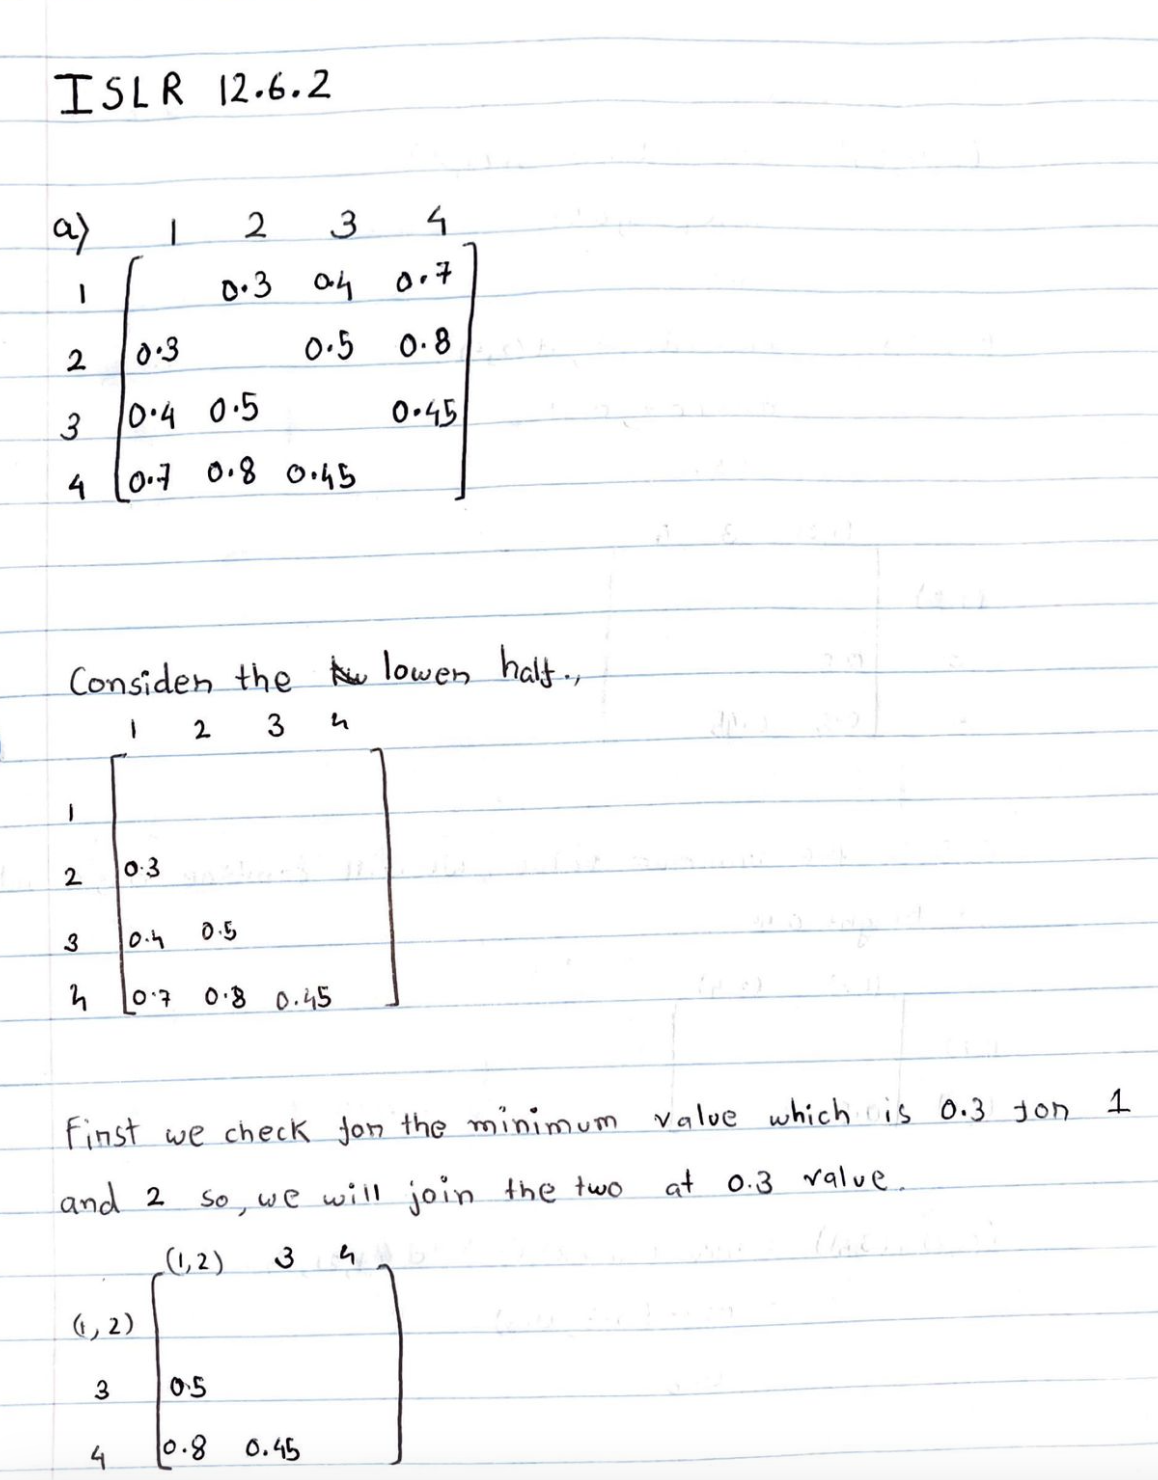 ISLR 12.6.2
a) 1 2 3 4
1 0.3 0.4 0.7
2 0.3 0.5 0.8
3 0.4 0.5 0.45
4 0.7 0.8 0.45
Consider the lower half.,
1 2 3 4
1
2 0.3
3 0.4 0.5
4 0.7 0.8 0.45
First we check for the minimum value which is 0.3 for 1
and 2 so, we will join the two at 0.3 value.
(1,2) 3 4
(1,2)
3 0.5
4 0.8 0.45